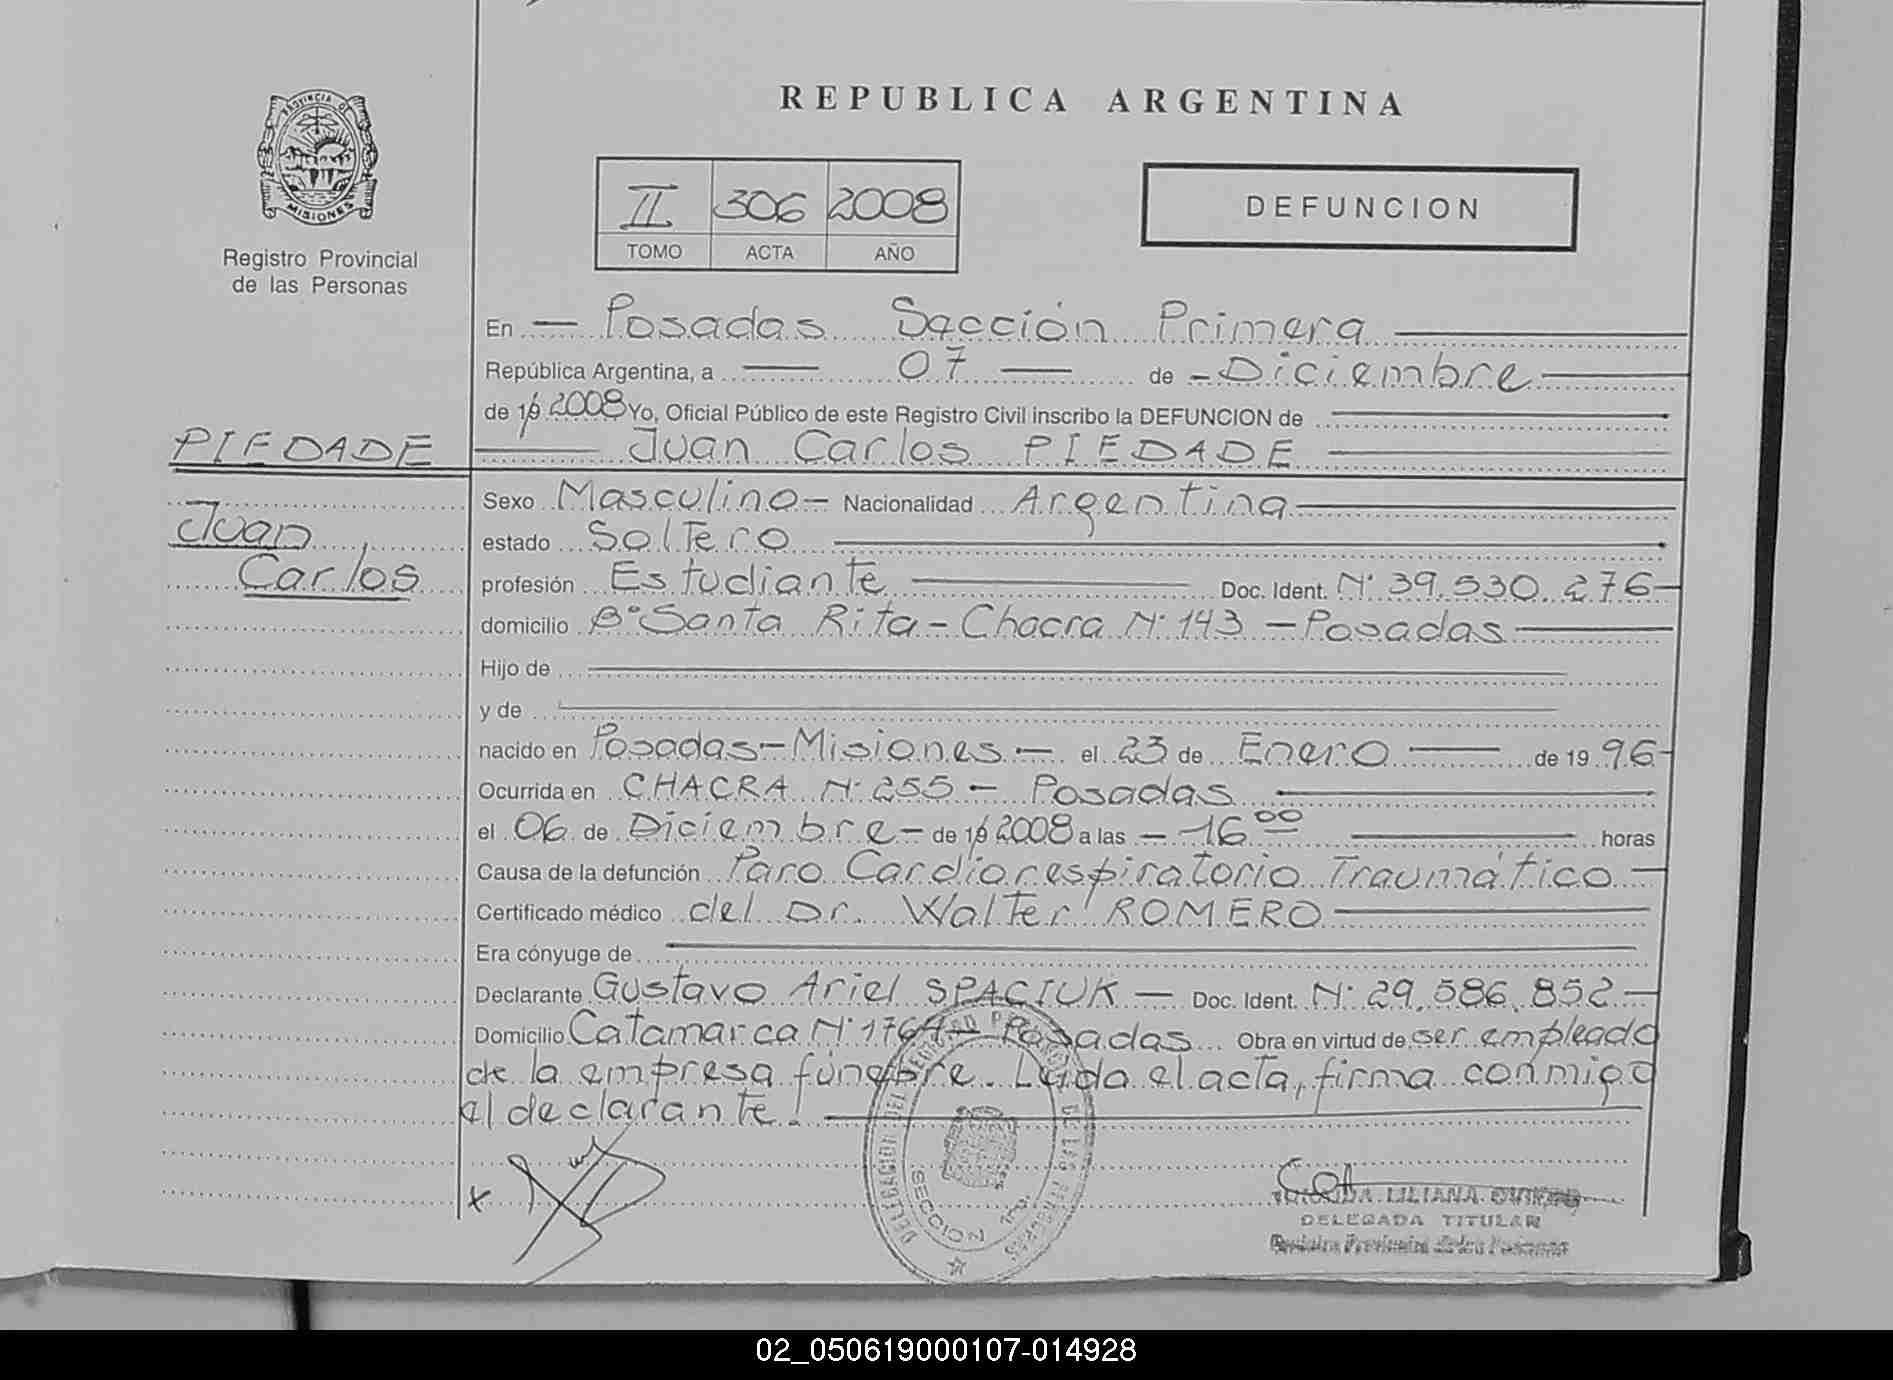 REPUBLICA ARGENTINA
PROVINCIA DE
MISIONES
Registro Provincial
de las Personas
II 306 2008
TOMO ACTA AÑO
DEFUNCION
En — Posadas Sección Primera
República Argentina, a — 07 — de - Diciembre
de 19 2008 Yo, Oficial Público de este Registro Civil inscribo la DEFUNCION de
PIEDADE
Juan Carlos PIEDADE
Juan
Carlos
Sexo Masculino - Nacionalidad Argentina
estado Soltero
profesión Estudiante Doc. Ident. Nº 39.530.276-
domicilio Bº Santa Rita - Chacra Nº 143 - Posadas
Hijo de
y de
nacido en Posadas - Misiones - el 23 de Enero de 19 96-
Ocurrida en CHACRA Nº 255 - Posadas
el 06 de Diciembre - de 19 2008 a las - 16 00 horas
Causa de la defunción Paro Cardiorespiratorio Traumático -
Certificado médico del Dr. Walter ROMERO
Era cónyuge de
Declarante Gustavo Ariel SPACIUK - Doc. Ident. Nº 29.586.852 -
Domicilio Catamarca Nº - Posadas Obra en virtud de ser empleado
de la empresa fúnebre. Leida el acta, firma conmigo
el declarante.
DELEGACION DEL REGISTRO PROVINCIAL DE LAS PERSONAS
SECCION 1ra.
LILIANA
DELEGADA TITULAR
Registro Provincial de las Personas
02_050619000107-014928